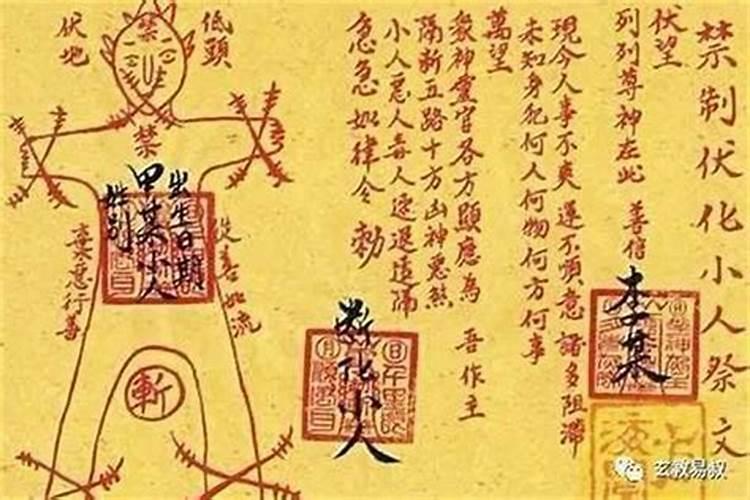 禁制伏化小人祭文
伏望
列列尊神在此 善信
李某
現今人事不爽運不順意諸多阻滯
未知身犯何人何物何方何事
萬望
眾神靈官各方顯應為 吾作主
隔斷五路十方凶神惡煞
小人惡人毒人速退遠隔
急急如律令 勅
斷化小人
低頭
伏地
禁
禁
出生日期
甲某小人
性別
從善如流
棄惡行善
斬
玄教易叔